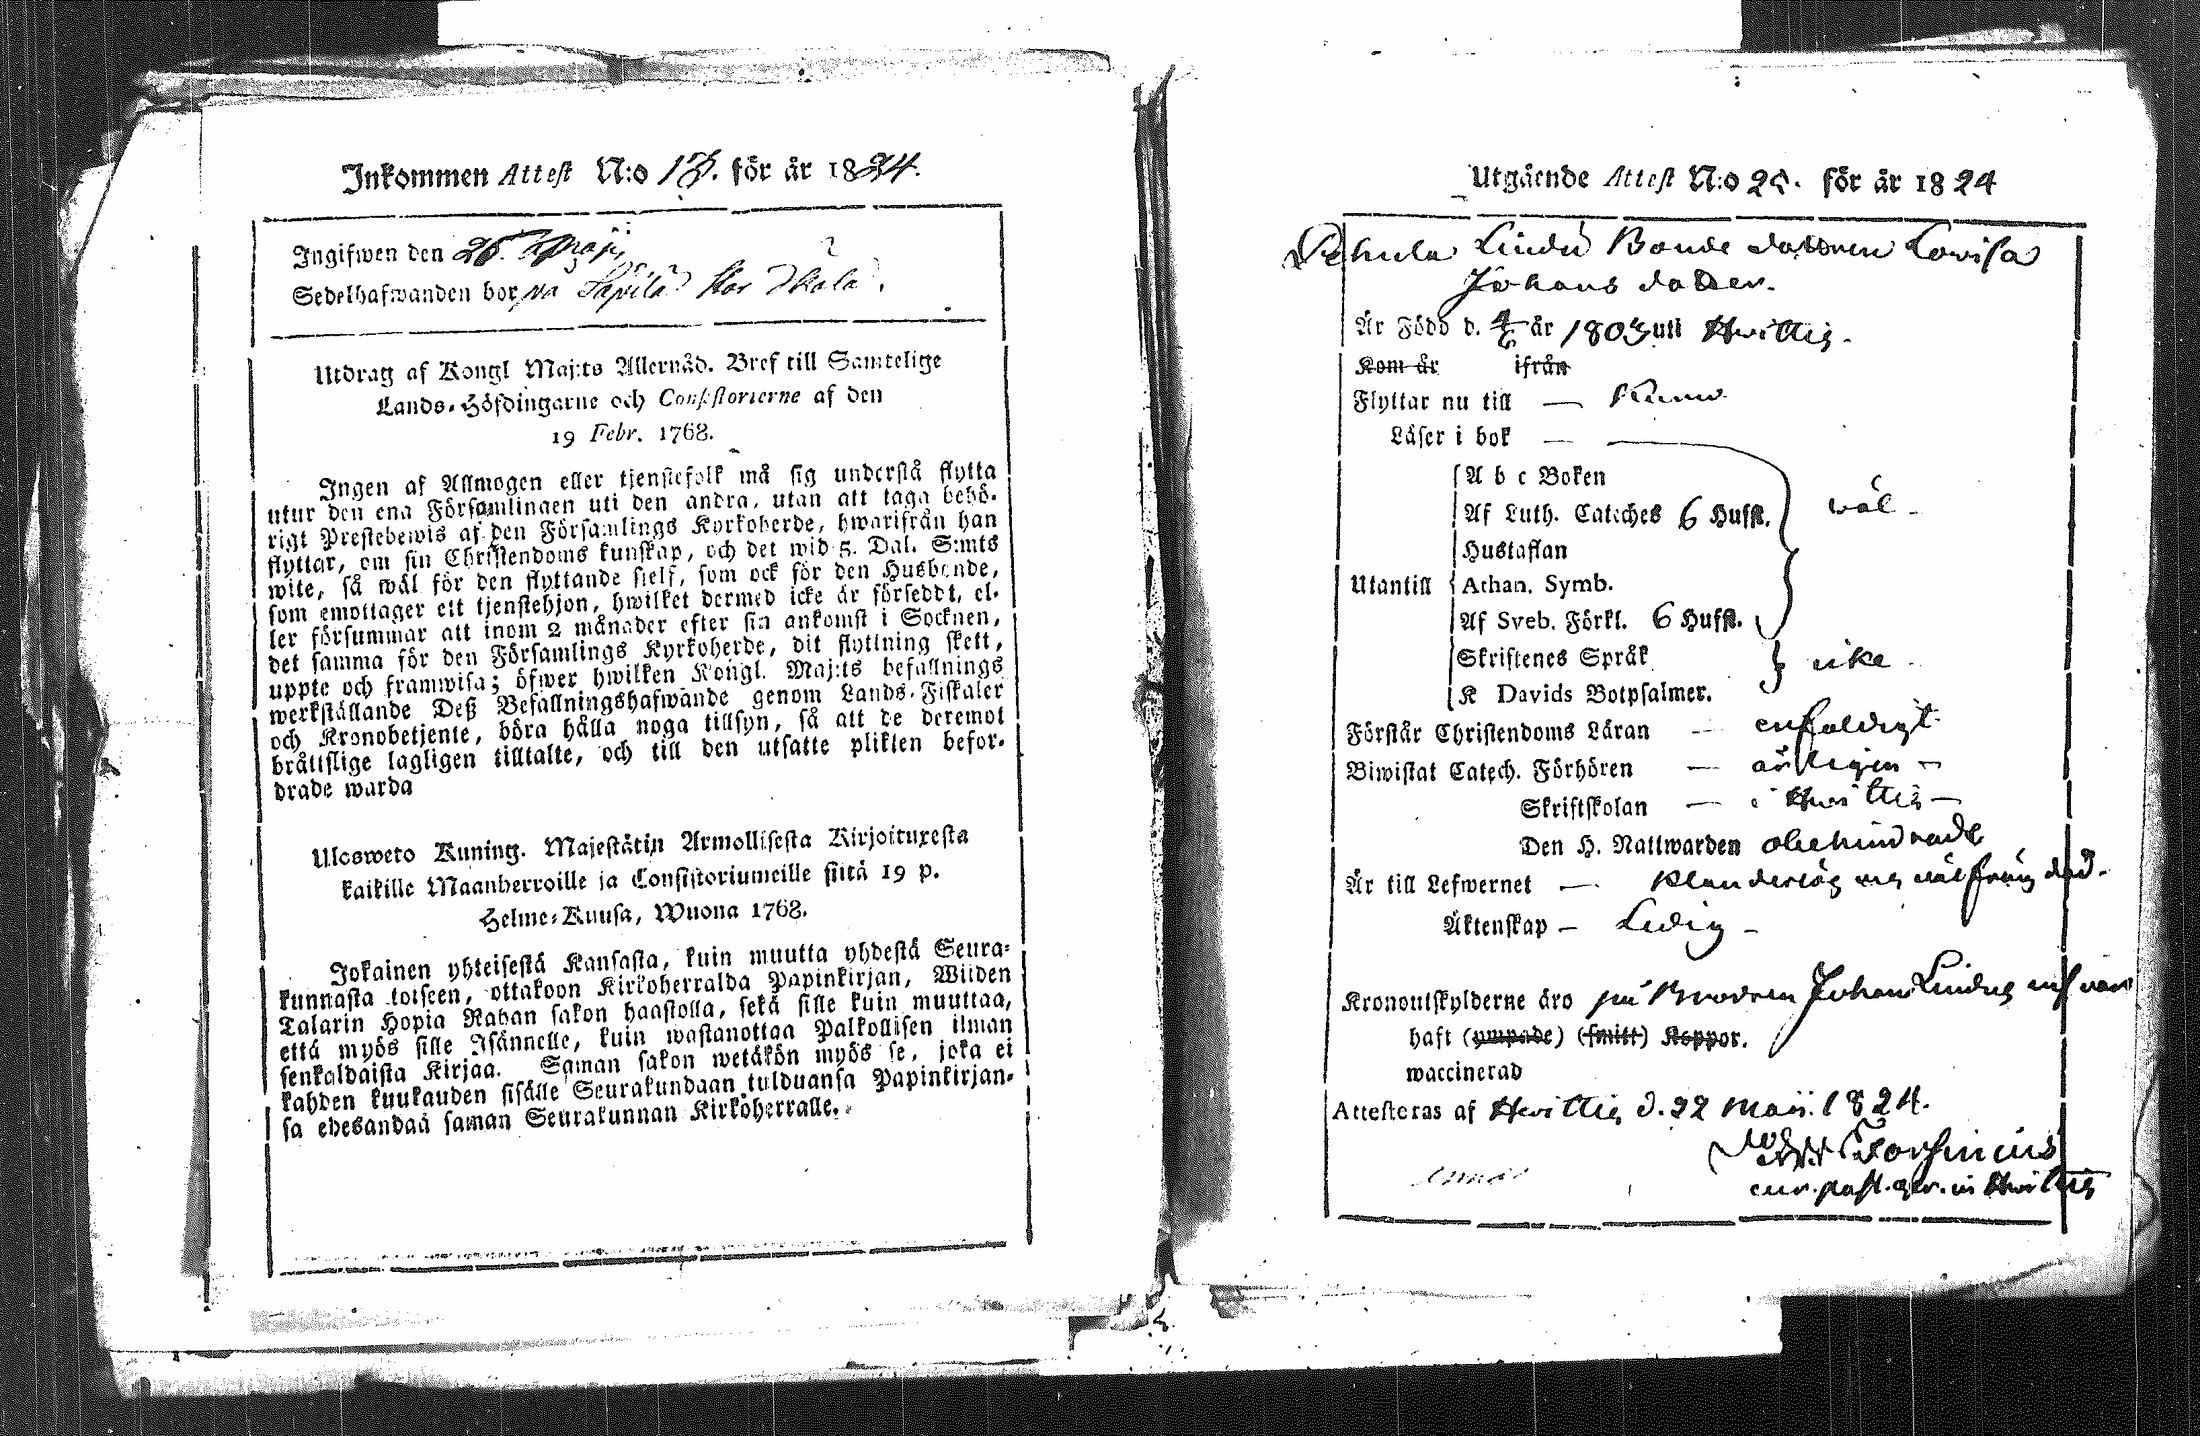 Inkommen Attest N:o 15. för år 1824.
Ingifwen den 26. Maji
Sedelhafwanden bor på Säpilä
Utdrag af Kongl Maj:ts Allernåd. Bref till Samtelige
Lands-Höfdingarne och Consistorierne af den
19 Febr. 1768.
Ingen af Allmogen eller tjenstefolk må sig understå flytta
utur den ena Församlingen uti den andra, utan att taga behö-
rigt Prestebewis af den Församlings Kyrkoherde, hwarifrån han
flyttar, om sin Christendoms kunskap, och det wid 5. Dal. S:mts
wite, så wäl för den flyttande sielf, som ock för den Husbonde,
som emottager ett tjenstehjon, hwilket dermed icke är förseddt, el-
ler försummar att inom 2 månader efter sin ankomst i Socknen,
det samma för den Församlings Kyrkoherde, dit flyttning skett,
uppte och framwisa; öfwer hwilken Kongl. Maj:ts befallnings
werkställande Deß Befallningshafwande genom Lands-Fiskaler
och Kronobetjente, böra hålla noga tillsyn, så att de deremot
bråttslige lagligen tilltalte, och till den utsatte plikten befor-
drade warda
Ulosweto Kuning. Majestätin Armollisesta Kirjoituxesta
kaikille Maanherroille ja Consistoriumeille siitä 19 p.
Helme-Kuusa, Wuona 1768.
Jokainen yhteisestä Kansasta, kuin muutta yhdestä Seura-
kunnasta toiseen, ottakoon Kirkoherralda Papinkirjan, Wiiden
Talarin Hopia Rahan sakon haastolla, sekä sille kuin muuttaa,
että myös sille Isännelle, kuin wastanottaa Palkollisen ilman
senkaldaista Kirjaa. Saman sakon wetäkön myös se, joka ei
kahden kuukauden sisälle Seurakundaan tulduansa Papinkirjan-
sa ehesandaa saman Seurakunnan Kirkoherralle.
Utgående Attest N:o för år 1824
Bonde dottren Lovisa
Johans dotter.
Är Född d. 4/6 år 1803 uti Hvittis.
Kom år ifrån
Flyttar nu till — Kumo
Läser i bok —
A b c Boken
Af Luth. Cateches 6 Hufst. väl
Hustaflan
Utantill Athan. Symb.
Af Sveb. Förkl. 6 Hufst.
Skriftenes Språk icke
K Davids Botpsalmer.
Förstår Christendoms Läran — enfaldigt
Biwistat Catech. Förhören — årligen
Skriftskolan — i Hvittis —
Den H. Nattwarden obehindrad
Är till Lefwernet — klanderlös och väl frägdad.
Äktenskap — Ledig —
Kronoutskylderne äro på Brodren Johan Lindus
haft (ympade) (smitt) Koppor.
waccinerad
Attesteras af Hvittis d. 22 Maii. 1824.
Forsenius
cur. past. in Hvittis